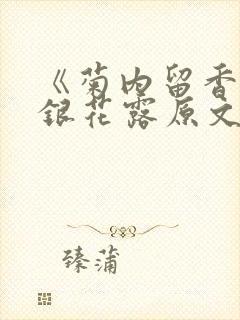 《菊内留香
银花露原文
臻蒲